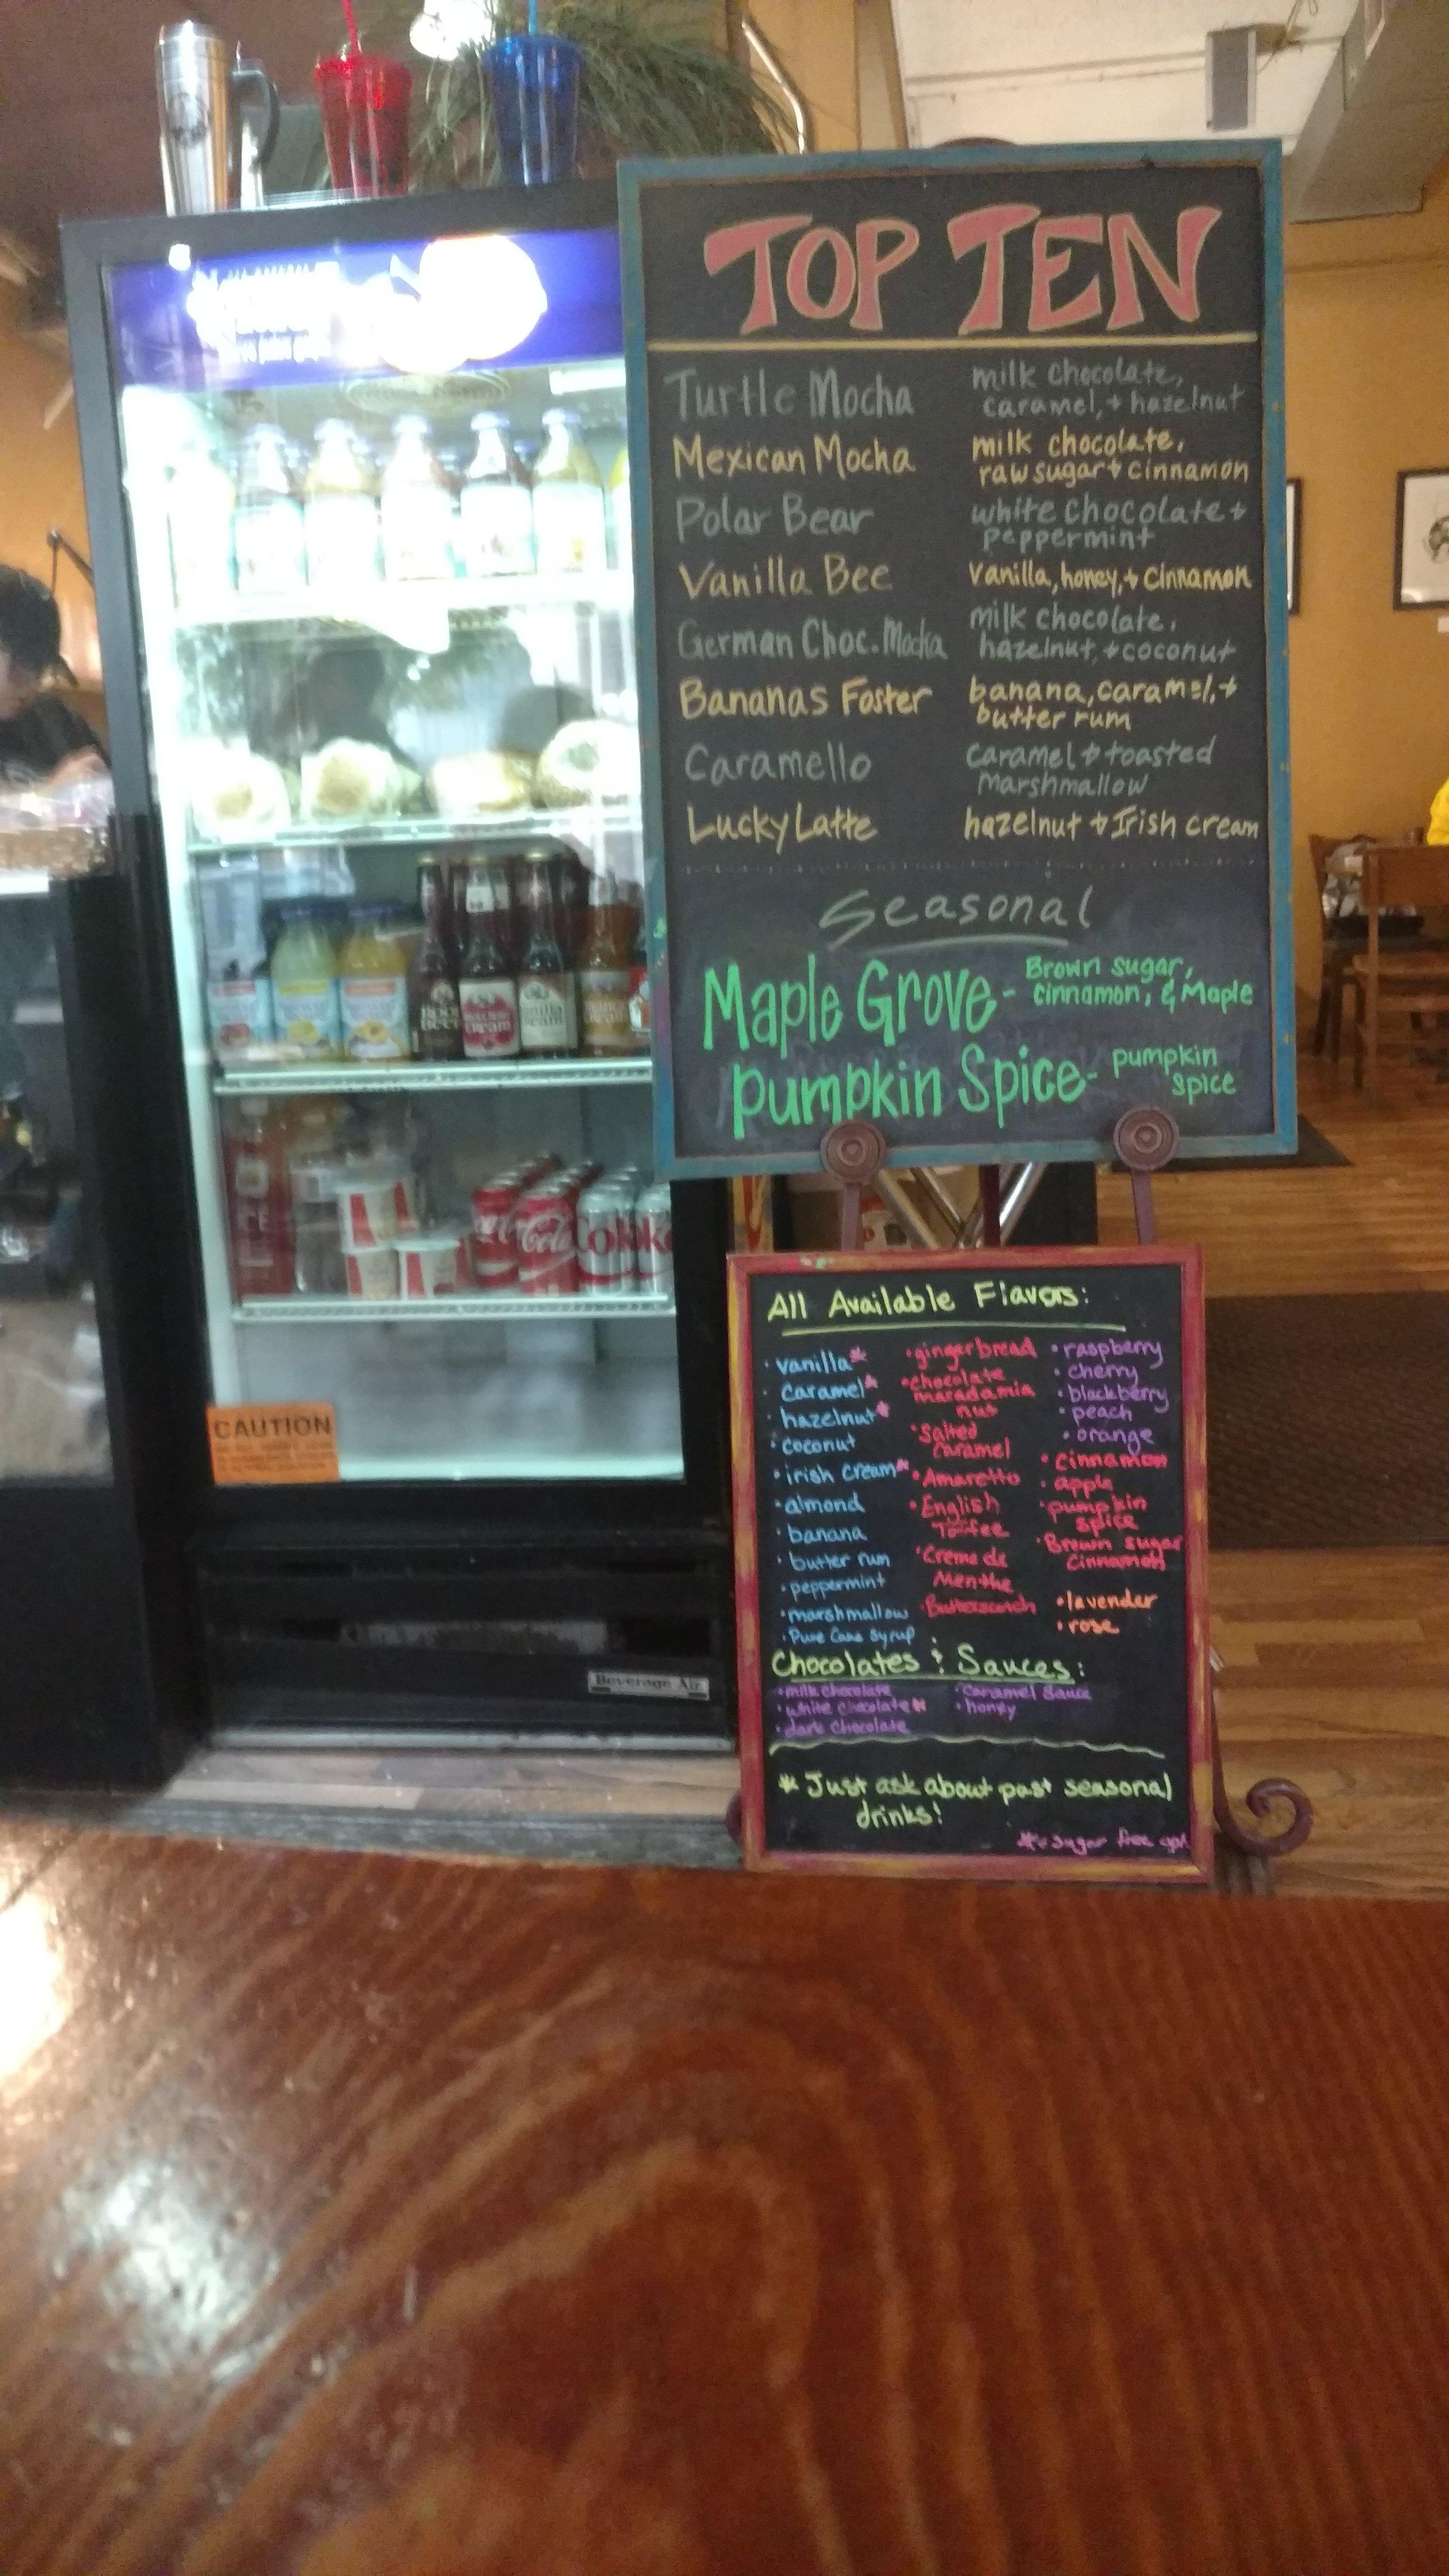 TOP TEN
Turtle Mocha milk chocolate,
caramel, + hazelnut
Mexican Mocha milk chocolate,
raw sugar + cinnamon
Polar Bear white chocolate +
peppermint
Vanilla Bee vanilla, honey, + cinnamon
German Choc. Mocha milk chocolate,
hazelnut, + coconut
Bananas Foster banana, caramel, +
butter rum
Caramello Caramel + toasted
Marshmallow
Lucky Latte hazelnut + Irish cream
Seasonal
Maple Grove - Brown sugar,
cinnamon, & Maple
Pumpkin Spice - pumpkin
spice
All Available Flavors:
• vanilla*
• Caramel*
• hazelnut*
• coconut
• irish cream*
• almond
• banana
• butter rum
• peppermint
• marshmallow
• Pure Cane Syrup
• gingerbread
• chocolate
macadamia
nut
• Salted
Caramel
• Amaretto
• English
Toffee
• Creme de
Menthe
• Butterscotch
• raspberry
• cherry
• blackberry
• peach
• orange
• cinnamon
• apple
• pumpkin
spice
• Brown sugar
Cinnamon
• lavender
• rose
Chocolates & Sauces:
• milk chocolate
• white chocolate*
• dark chocolate
• Caramel Sauce
• honey
* Just ask about past seasonal
drinks!
sugar free
CAUTION
Beverage Air
Coca
Coke